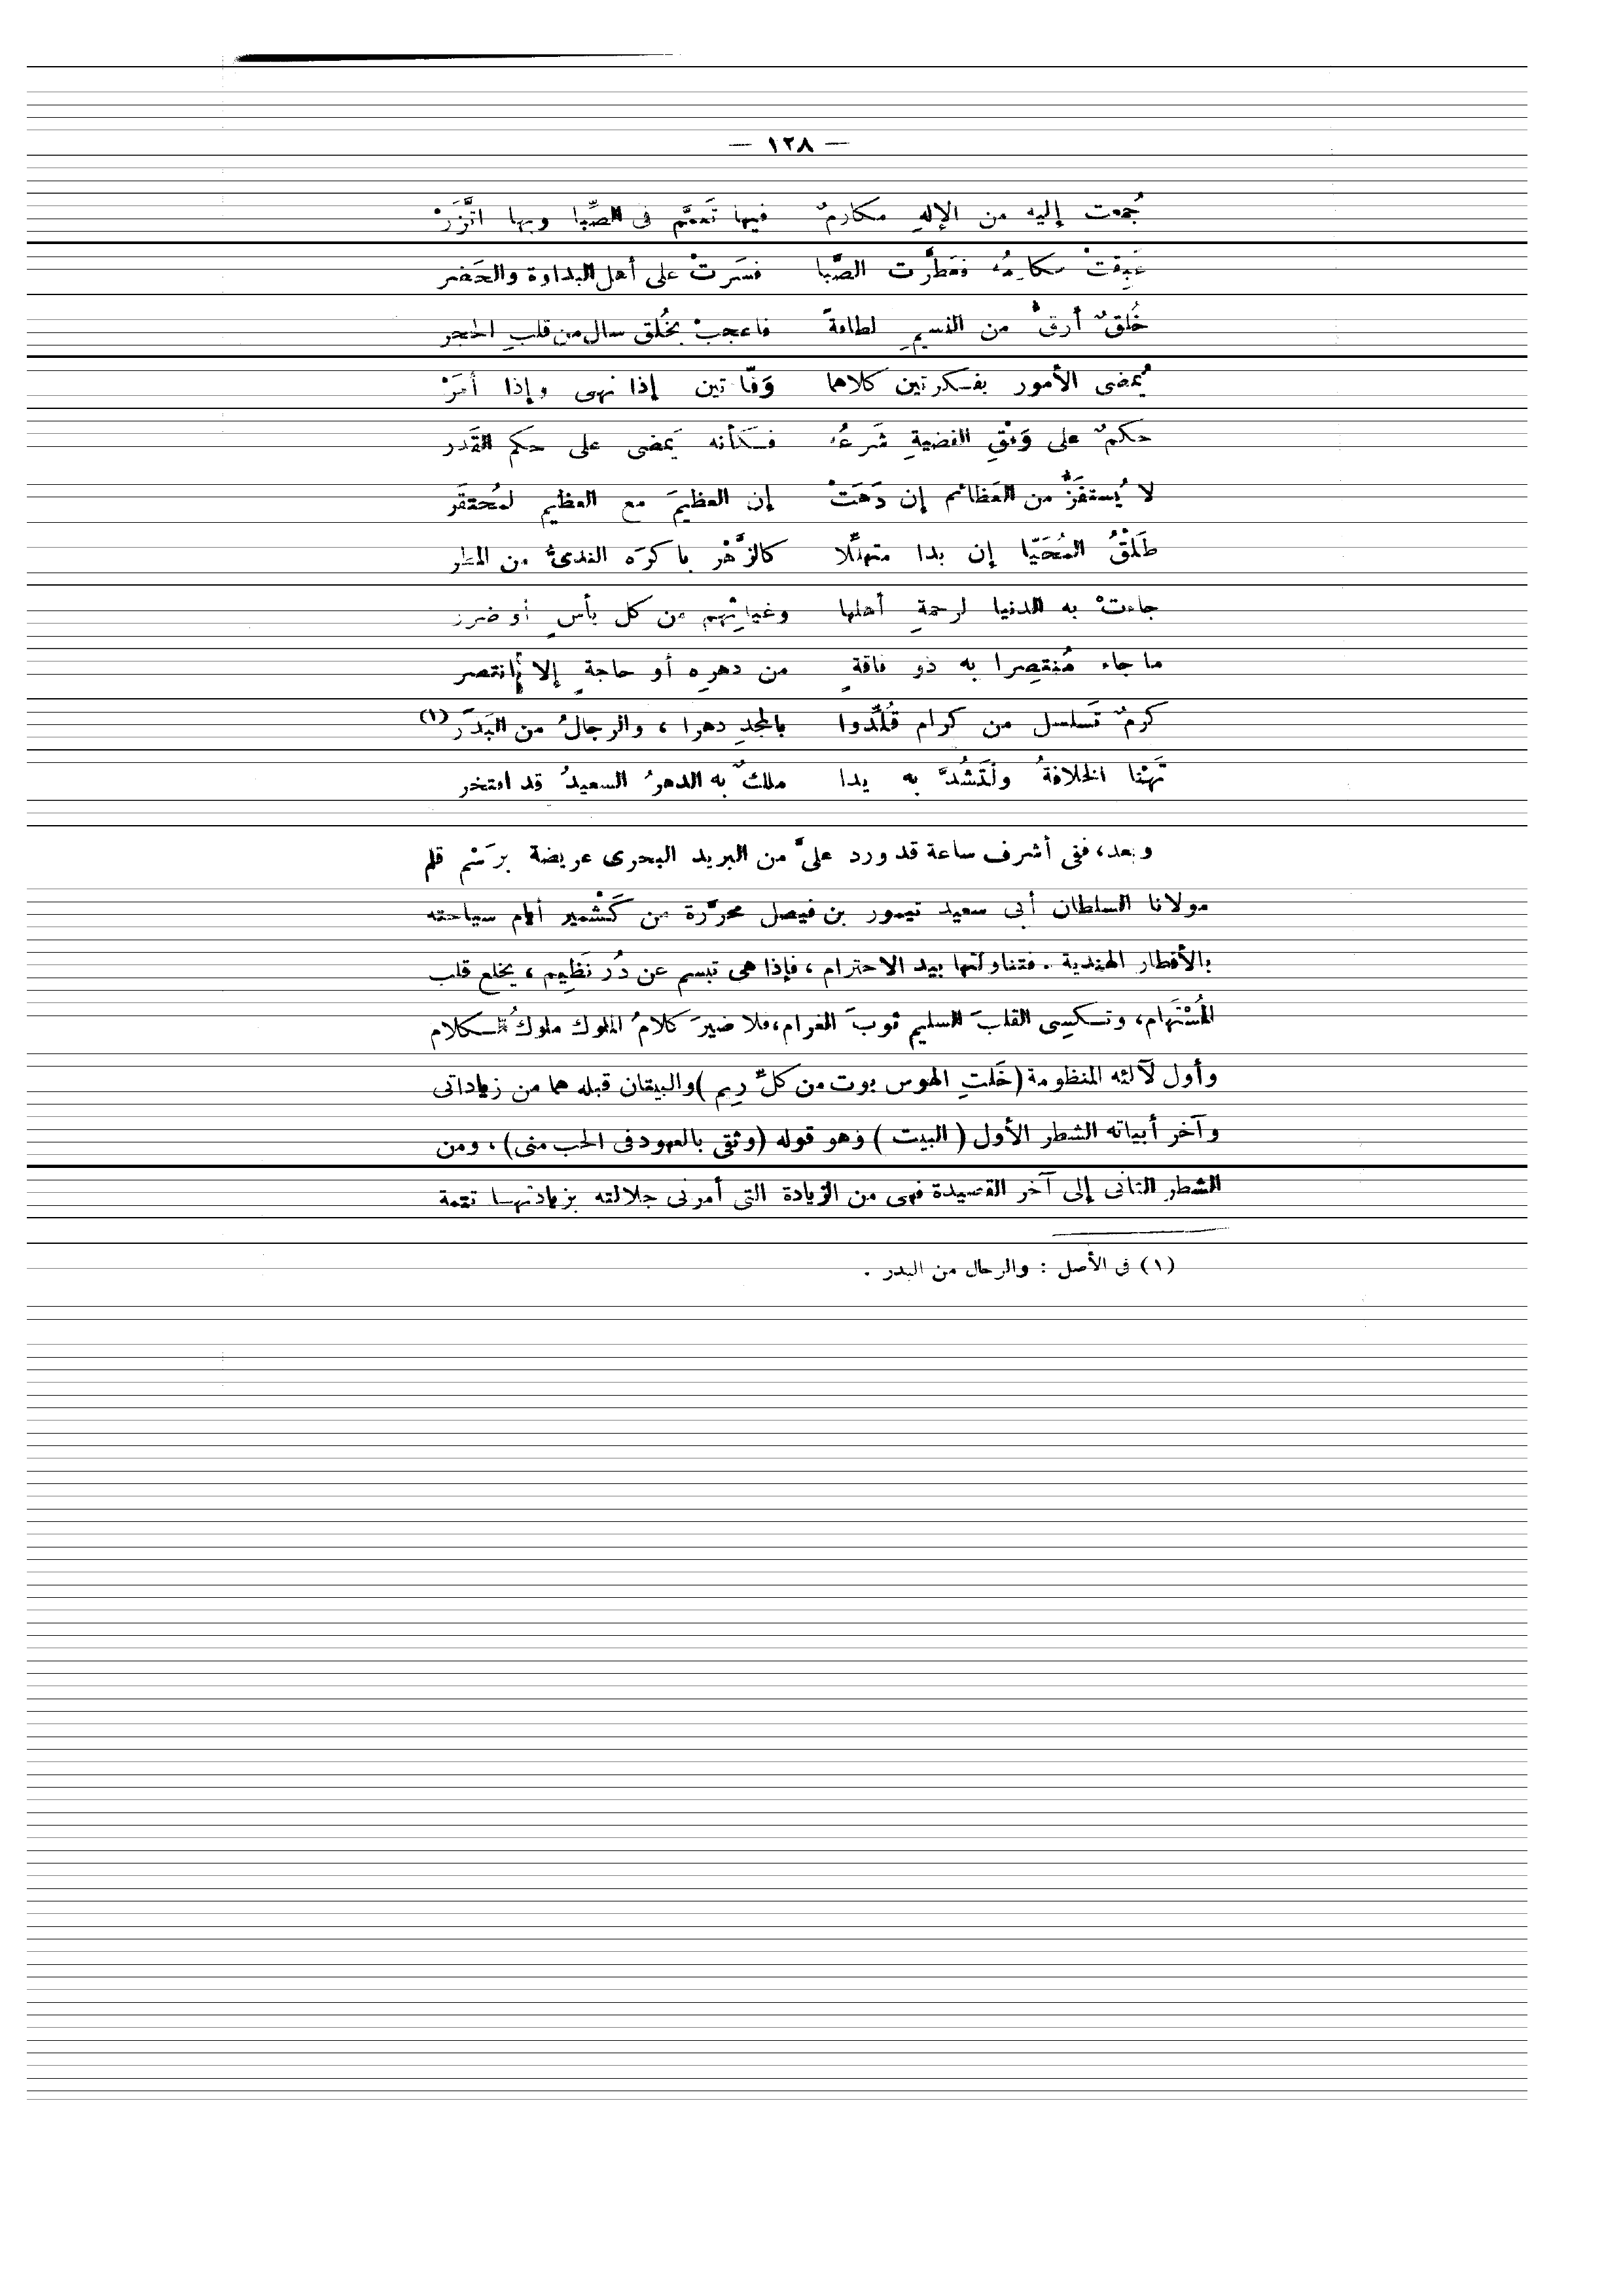 — ١٢٨ —
جُمعت إليه من الإلهِ مكارمٌ فيها تَعمَّم فى الصِّبا وبها اتَّزَرْ
عَبِقتْ مكارمُه فعطَّرت الصَّبا فسَرتْ على أهل البداوة والحَضر
خُلقٌ أرقُّ من النسيمِ لطافةً فاعجبْ بخُلق سال من قلبِ الحجر
يُمضى الأمور بفكرتين كلاهما وَقّا تين إذا نهى وإذا أمَرْ
حكمٌ على وَفْقِ القضيةِ شَرعُه فكأنه يَمضى على حكم القَدر
لا يُستفَزُّ من العَظائم إن دَهَتْ إن العظيمَ مع العظيم لمُحتقَر
طَلْقُ المُحَيّا إن بدا متهللًا كالزَّهْر باكرَه الندىُّ من المطر
جاءتْ به الدنيا لرحمةِ أهلها وغياثِهم من كل بأسٍ أو ضرر
ما جاء مُنتصِرا به ذو فاقةٍ من دهرِه أو حاجةٍ إلا انتصر
كرمٌ تَسلسل من كرام قُلِّدوا بالمجدِ دهرا ، والرجالُ من البَدَر (١)
تَهْنا الخلافةُ ولْتَشُدَّ به يدا ملكٌ به الدهرُ السعيدُ قد افتخر
وبعد، ففى أشرف ساعة قد ورد علىَّ من البريد البحرى عريضة برَسْم قلم
مولانا السلطان أبى سعيد تيمور بن فيصل محرَّرة من كَشْمير أيام سياحته
بالأقطار الهندية . فتناولتها بيد الاحترام ، فإذا هى تبسم عن دُر نَظِيم ، يخلع قلب
المُسْتَهام، وتكسِى القلبَ السليم ثوبَ الغرام، فلا ضيرَ كلامُ الملوك ملوكُ الكلام
وأول لآلئه المنظومة (خَلتِ الهوس بوت من كلِّ رِيم) والبيتان قبله هما من زياداتى
وآخر أبياته الشطر الأول ( البيت ) وهو قوله (وثقى بالعهود فى الحب منى) ، ومن
الشطر الثانى إلى آخر القصيدة فهى من الزيادة التى أمرنى جلالته بزيادتها تتمة
(١) فى الأصل : والرحال من البدر .